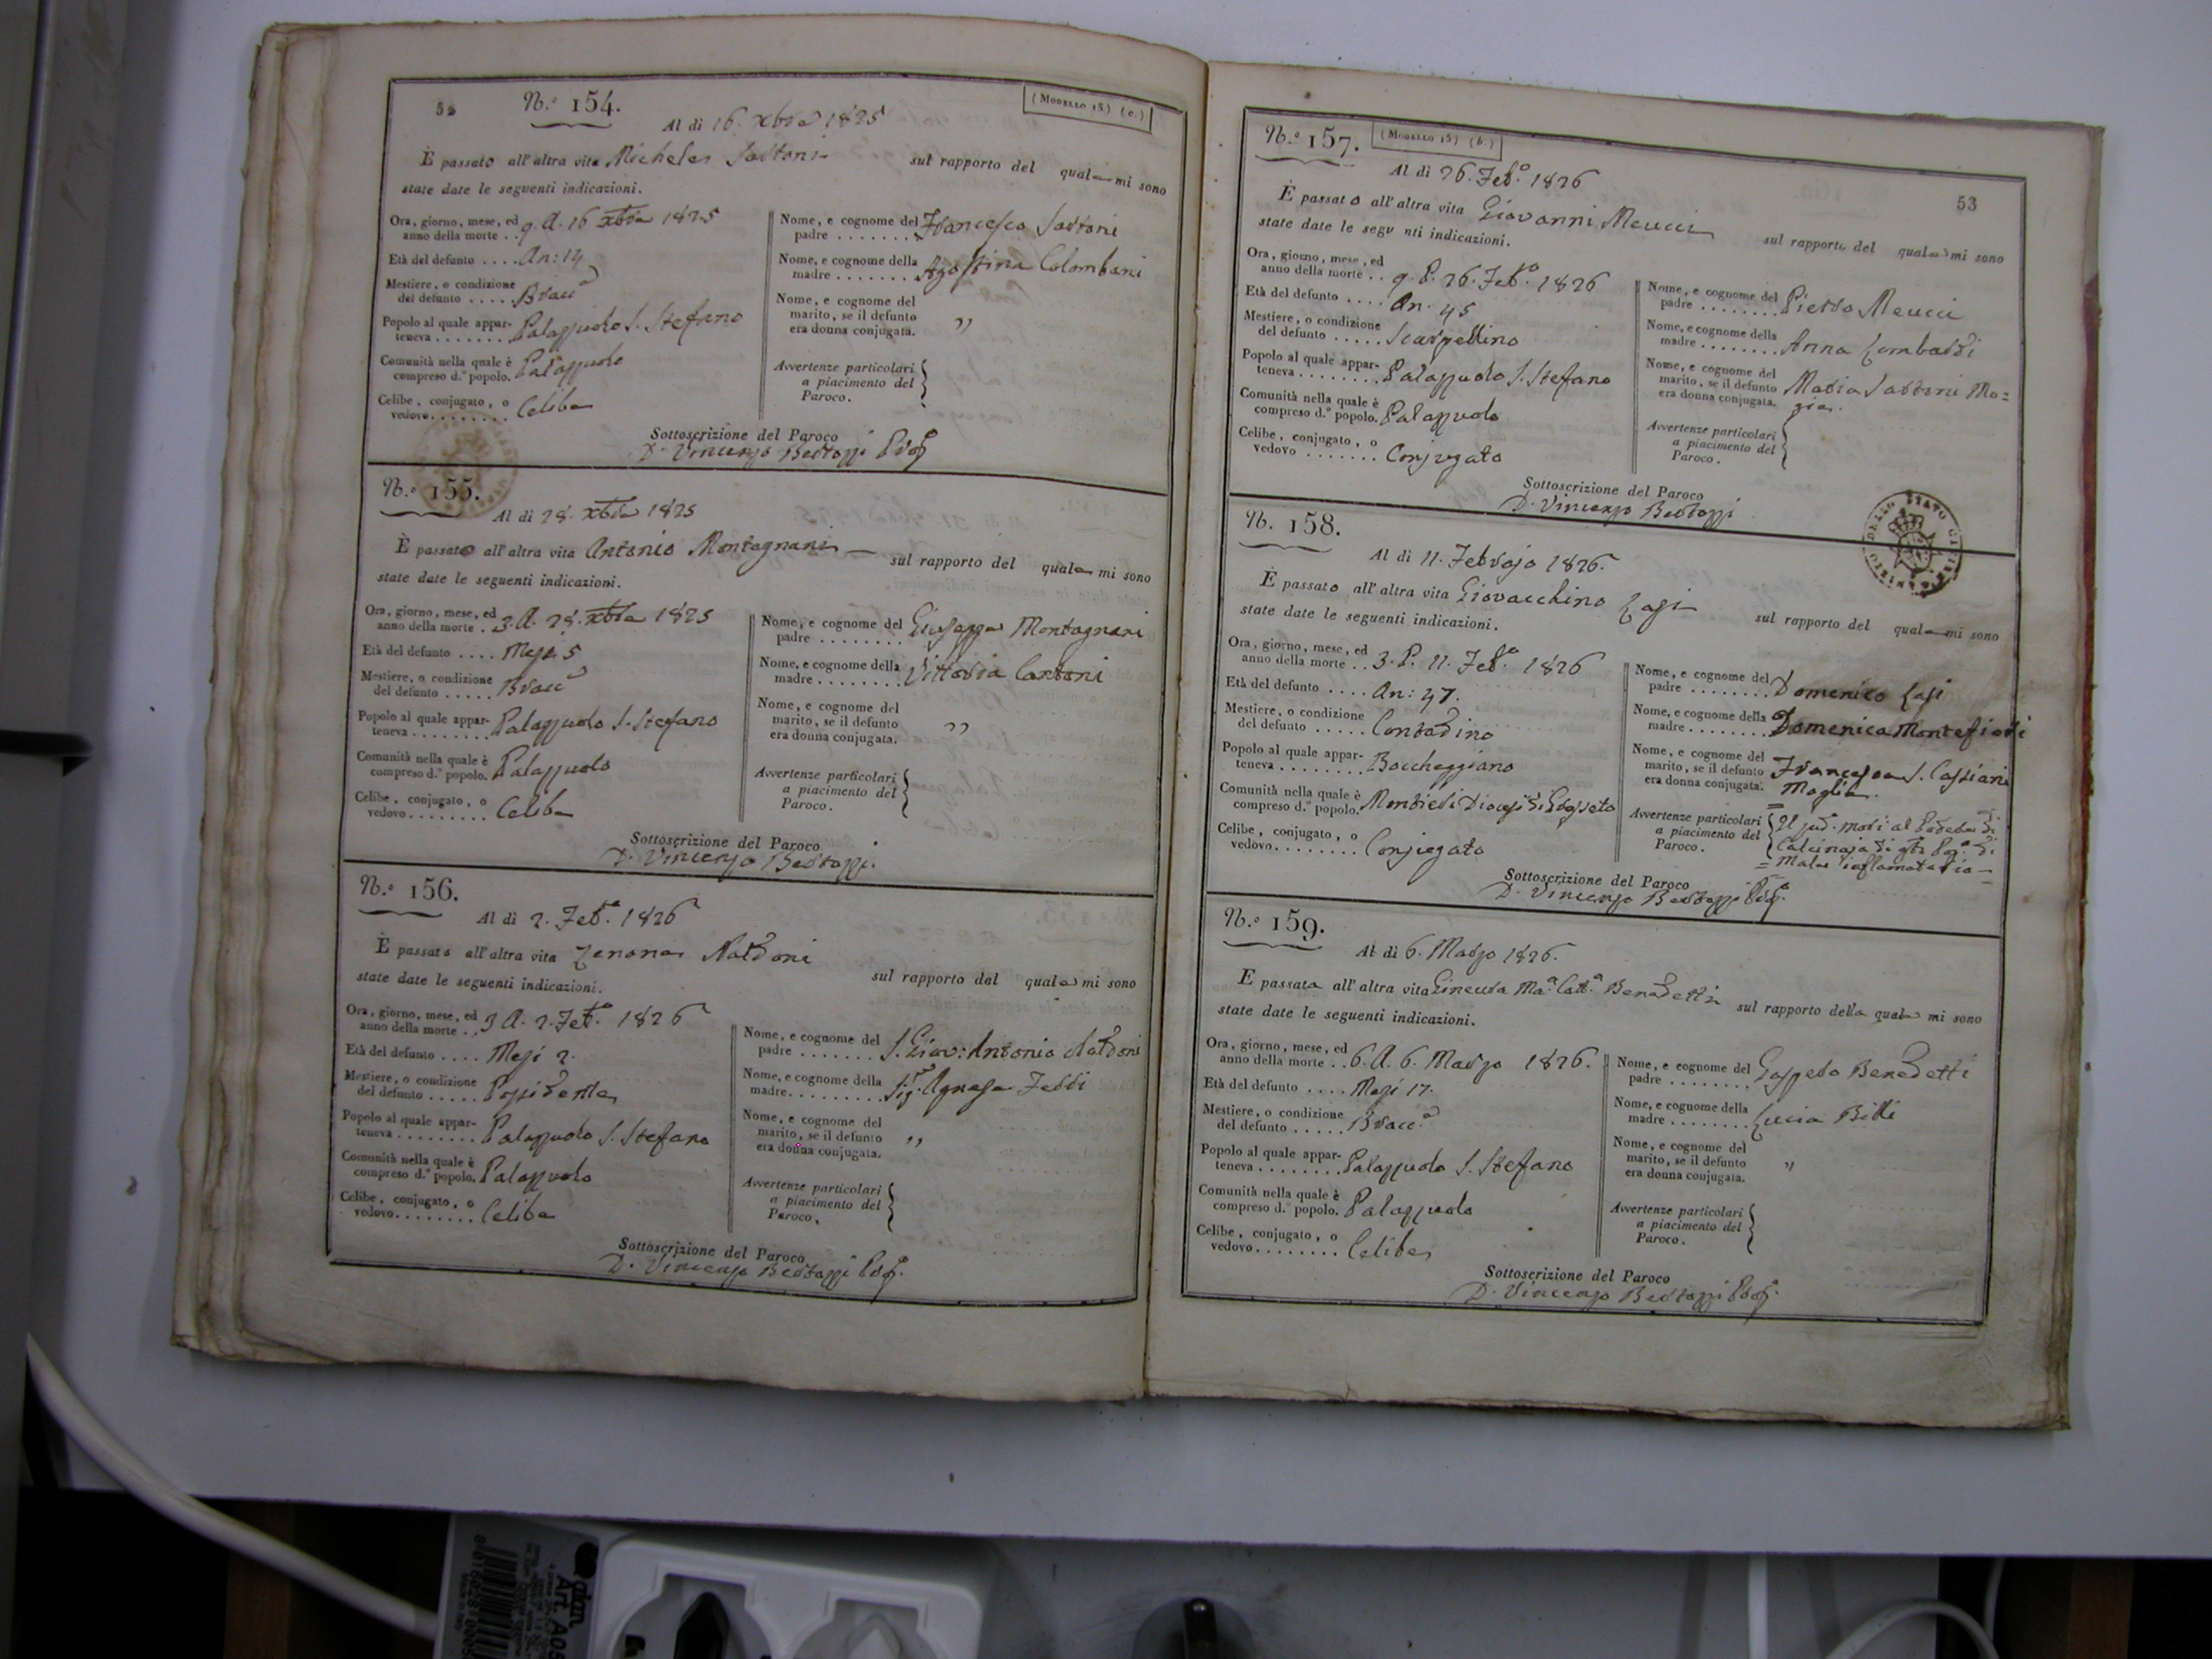 52
N.º 154.
(Modello 15) (c.)
Al dì 16. xbre 1825
È passato all'altra vita Michele Sartoni sul rapporto del quale mi sono
state date le seguenti indicazioni.
Ora, giorno, mese, ed
anno della morte .. 9. A. 16 xbre 1825
Età del defunto .... An: 14
Mestiere, o condizione
del defunto ..... Bracc.e
Popolo al quale appar-
teneva ........ Palazzuolo S. Stefano
Comunità nella quale è
compreso d.º popolo. Palazzuolo
Celibe, conjugato, o
vedovo......... Celibe
Nome, e cognome del
padre ........ Francesco Sartoni
Nome, e cognome della
madre ........ Agostina Colombani
Nome, e cognome del
marito, se il defunto
era donna conjugata. "
Avvertenze particolari
a piacimento del
Paroco.
Sottoscrizione del Paroco
D. Vincenzo Bertozzi
N.º 155.
Al dì 28. xbre 1825
È passato all'altra vita Antonio Montagnani sul rapporto del quale mi sono
state date le seguenti indicazioni.
Ora, giorno, mese, ed
anno della morte . 3. A. 28. xbre 1825
Età del defunto .... Mesi 5
Mestiere, o condizione
del defunto ..... Bracc.e
Popolo al quale appar-
teneva ........ Palazzuolo S. Stefano
Comunità nella quale è
compreso d.º popolo. Palazzuolo
Celibe, conjugato, o
vedovo........ Celibe
Nome, e cognome del
padre ........ Giuseppe Montagnani
Nome, e cognome della
madre ........ Vittoria Cantoni
Nome, e cognome del
marito, se il defunto
era donna conjugata. "
Avvertenze particolari
a piacimento del
Paroco.
Sottoscrizione del Paroco
D. Vincenzo Bertozzi.
N.º 156.
Al dì 2. Feb.º 1826
È passato all'altra vita Zenone Naldoni sul rapporto del quale mi sono
state date le seguenti indicazioni.
Ora, giorno, mese, ed
anno della morte .. 3 A. 2. Feb.º 1826
Età del defunto .... Mesi 2.
Mestiere, o condizione
del defunto ..... Possidente
Popolo al quale appar-
teneva ........ Palazzuolo S. Stefano
Comunità nella quale è
compreso d.º popolo. Palazzuolo
Celibe, conjugato, o
vedovo........ Celibe
Nome, e cognome del
padre ........ S. Giov: Antonio Naldoni
Nome, e cognome della
madre......... Sig.ra Agnese Fabbi
Nome, e cognome del
marito, se il defunto
era donna conjugata. "
Avvertenze particolari
a piacimento del
Paroco.
Sottoscrizione del Paroco
D. Vincenzo Bertozzi
53
N.º 157.
(Modello 15) (b.)
Al dì 26. Feb.º 1826
È passato all'altra vita Giovanni Meucci sul rapporto del quale mi sono
state date le segu nti indicazioni.
Ora, giorno, mese, ed
anno della morte .. 9. P. 26. Feb.º 1826
Età del defunto .... An. 45
Mestiere, o condizione
del defunto ..... Scarpellino
Popolo al quale appar-
teneva ........ Palazzuolo S. Stefano
Comunità nella quale è
compreso d.º popolo. Palazzuolo
Celibe, conjugato, o
vedovo ....... Conjugato
Nome, e cognome del
padre ........ Pietro Meucci
Nome, e cognome della
madre ........ Anna Lombardi
Nome, e cognome del
marito, se il defunto
era donna conjugata. Maria Sartoni Mo=
glie.
Avvertenze particolari
a piacimento del
Paroco.
Sottoscrizione del Paroco
D. Vincenzo Bertozzi
N. 158.
Al dì 11. Febrajo 1826.
È passato all'altra vita Giovacchino Lagi sul rapporto del quale mi sono
state date le seguenti indicazioni.
Ora, giorno, mese, ed
anno della morte .. 3. P. 11. Feb.º 1826
Età del defunto .... An: 47.
Mestiere, o condizione
del defunto ..... Contadino
Popolo al quale appar-
teneva ........ Boccheggiano
Comunità nella quale è
compreso d.º popolo. Montieri Diocesi di Grosseto
Celibe, conjugato, o
vedovo........ Conjugato
Nome, e cognome del
padre ........ Domenico Lagi
Nome, e cognome della
madre ........ Domenica Montefiori
Nome, e cognome del
marito, se il defunto
era donna conjugata. Francesca S. Cassiani
Moglie.
Avvertenze particolari
a piacimento del
Paroco.
Il sud.º morì al Podere di
Calcinaja di
Male inflamatorio
Sottoscrizione del Paroco
D. Vincenzo Bertozzi
DELLO STATO CIVILE
N.º 159.
Al dì 6. Marzo 1826.
È passata all'altra vita Ginevra Ma.ª Catt.ª Benedetti sul rapporto della quale mi sono
state date le seguenti indicazioni.
Ora, giorno, mese, ed
anno della morte .. 6. A. 6. Marzo 1826.
Età del defunto .... Mesi 17.
Mestiere, o condizione
del defunto ..... Bracc.e
Popolo al quale appar-
teneva ........ Palazzuolo S. Stefano
Comunità nella quale è
compreso d.º popolo. Palazzuolo
Celibe, conjugato, o
vedovo........ Celibe
Nome, e cognome del
padre ........ Gaspero Benedetti
Nome, e cognome della
madre ........ Lucia Billi
Nome, e cognome del
marito, se il defunto
era donna conjugata. "
Avvertenze particolari
a piacimento del
Paroco.
Sottoscrizione del Paroco
D. Vincenzo Bertozzi
Art. A05